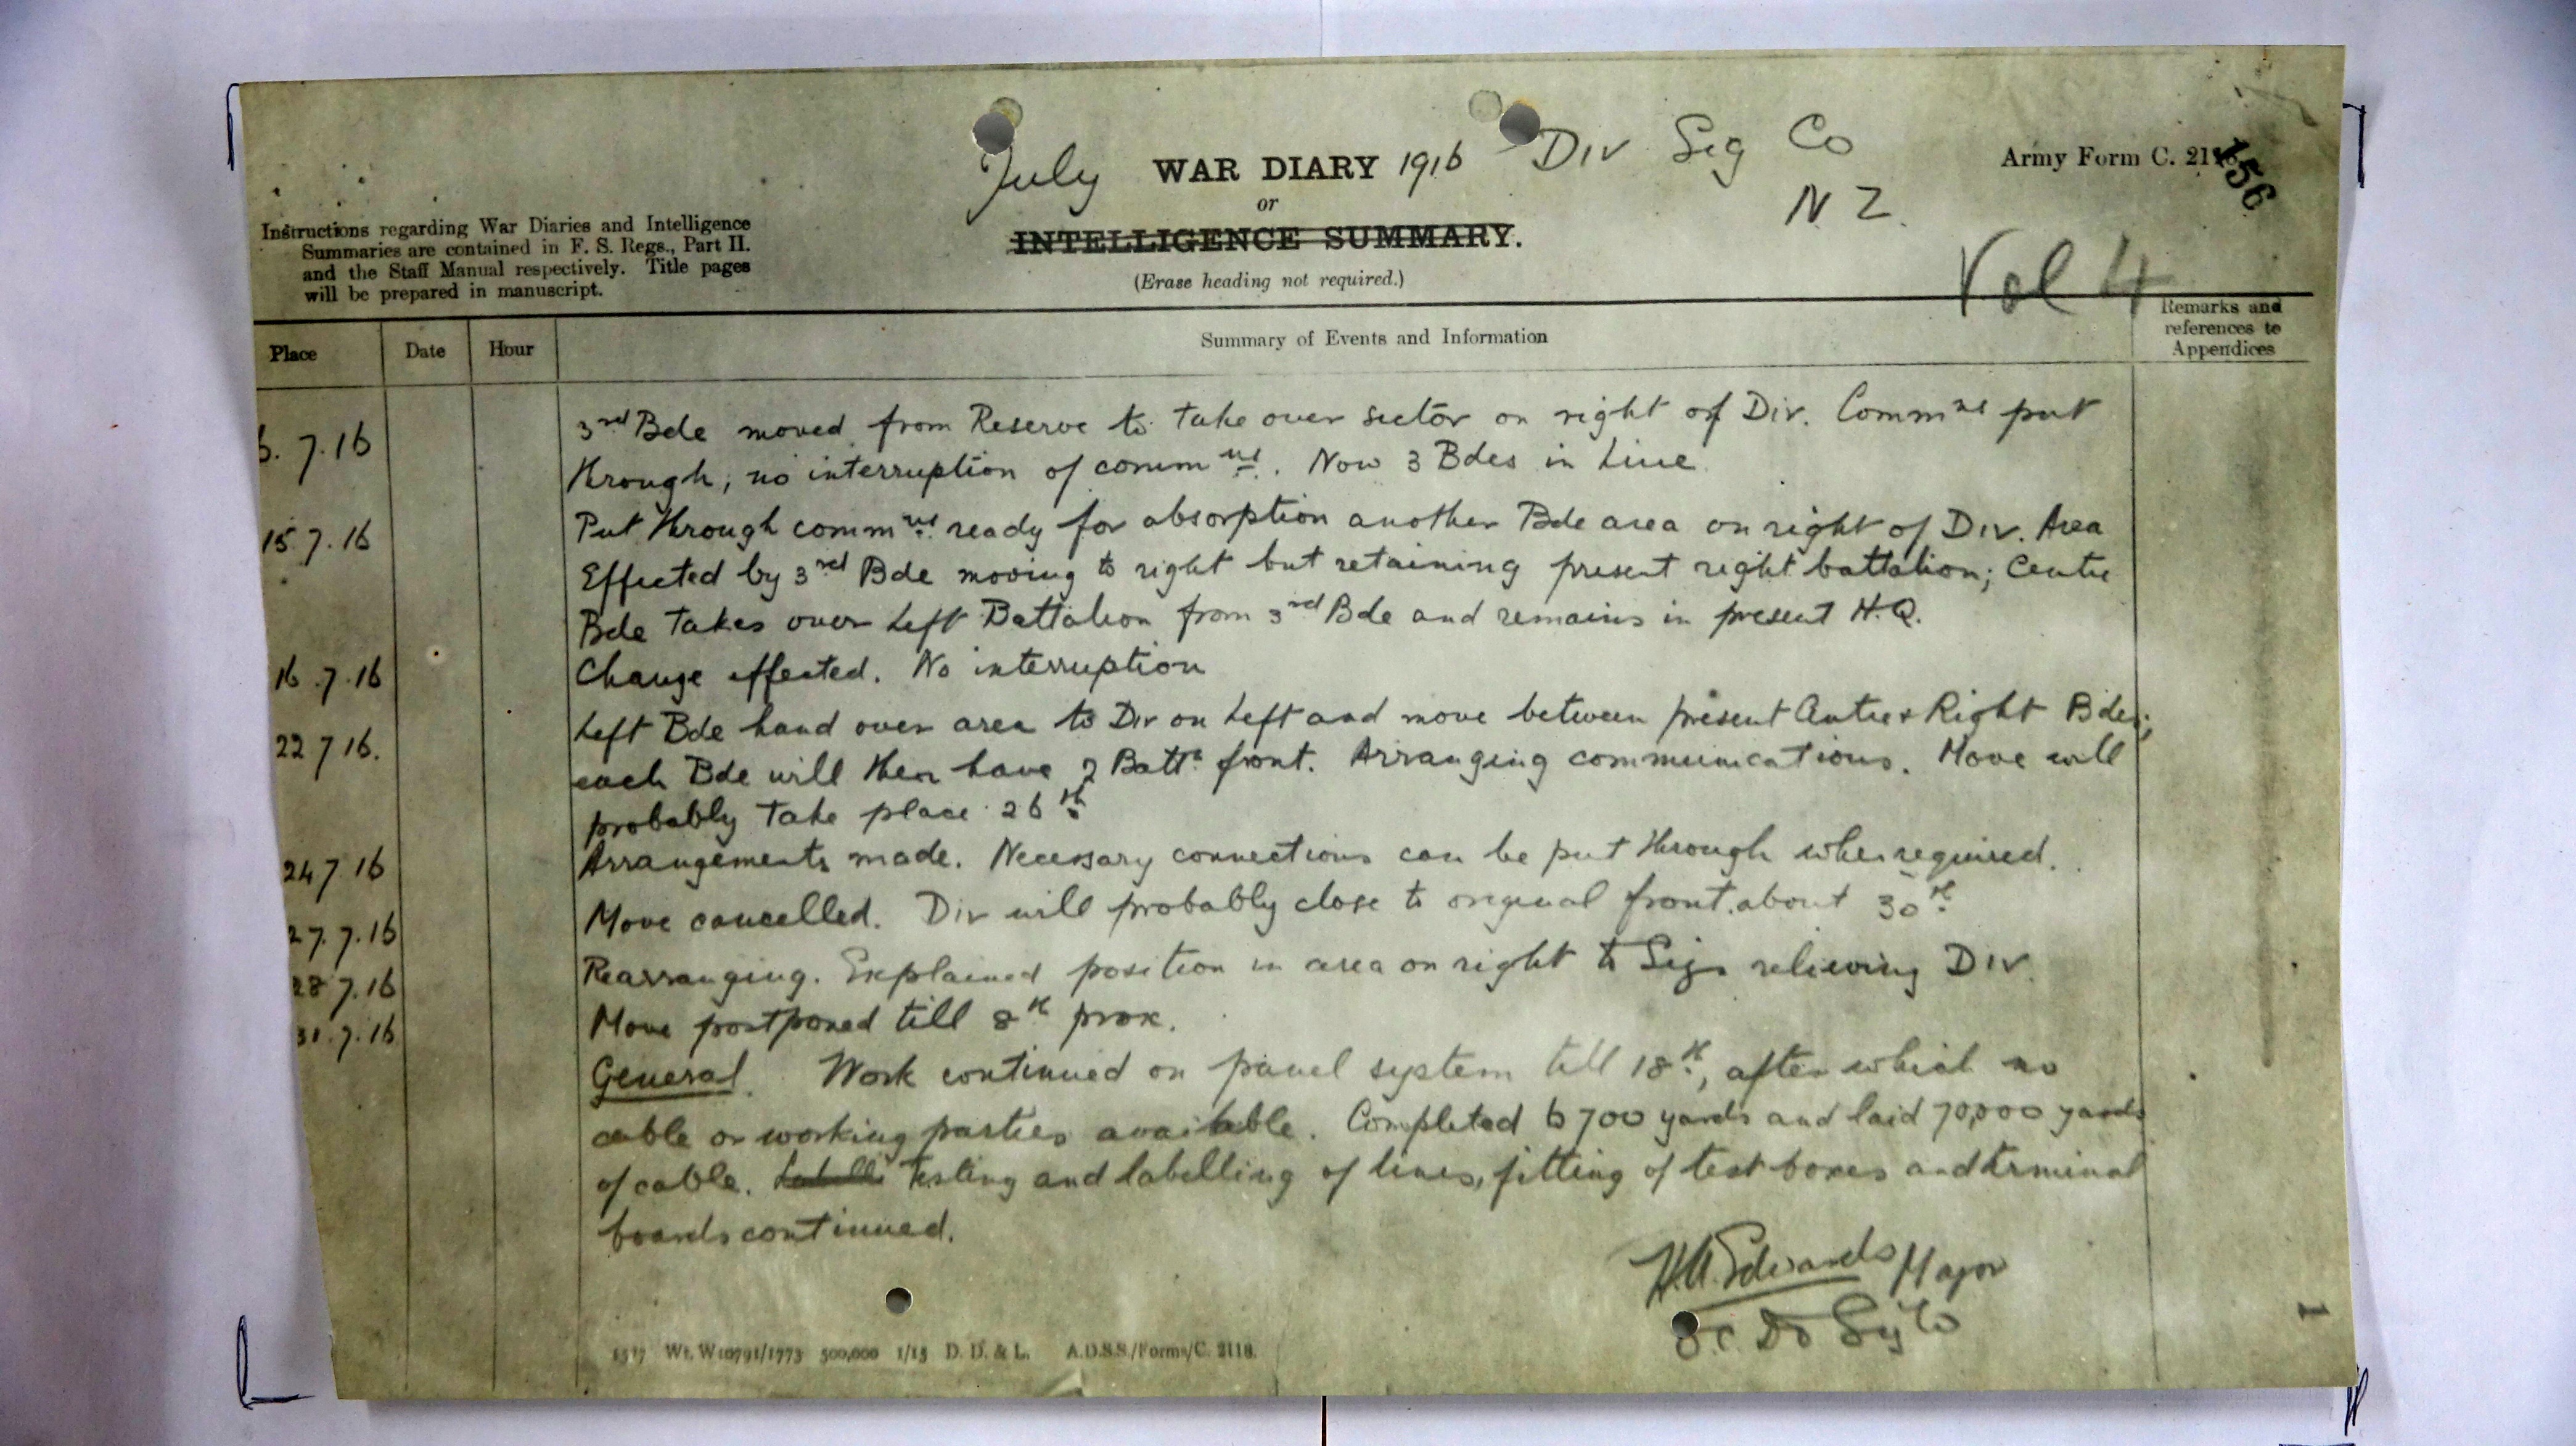 July WAR DIARY 1916 Div Sig Co
N Z.
Army Form C. 2118.
156
or
INTELLIGENCE SUMMARY.
(Erase heading not required.)
Vol 4
Instructions regarding War Diaries and Intelligence
Summaries are contained in F. S. Regs., Part II.
and the Staff Manual respectively. Title pages
will be prepared in manuscript.
Place Date Hour Summary of Events and Information Remarks and references to Appendices
6.7.16 3rd Bde moved from Reserve to take over sector on right of Div. Commns put
through; no interruption of commns. Now 3 Bdes in Line.
15.7.16 Put through commns ready for absorption another Bde area on right of Div. Area
Effected by 3rd Bde moving to right but retaining present right battalion; Centre
Bde takes over Left Battalion from 3rd Bde and remains in present H.Q.
16.7.16 Change effected. No interruption
22 7 16. Left Bde hand over area to Div on Left and move between present Centre & Right Bdes;
each Bde will then have 2 Battn front. Arranging communications. Move will
probably take place 26th
24 7 16 Arrangements made. Necessary connections can be put through when required.
27.7.16 Move cancelled. Div will probably close to original front about 30th
28 7.16 Rearranging. Explained position in area on right to Sigs relieving Div.
31.7.16 Move postponed till 8th prox.
General. Work continued on panel system till 18th, after which no
cable or working parties available. Completed 6700 yards and laid 70,000 yards
of cable. Testing and labelling of lines, fitting of test boxes and terminal
boards continued.
H.A. Edwards Major
O.C. Div Sig Co
1577 Wt. W10791/1773 500,000 1/15 D. D. & L. A.D.S.S./Forms/C. 2118.
1